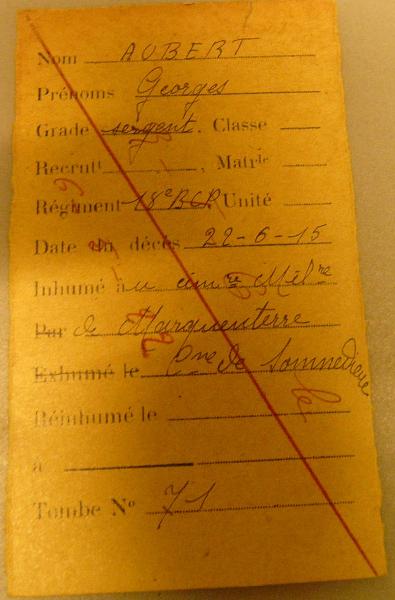 Nom AUBERT
Prénoms Georges
Grade sergent. Classe
Recrutt , Matrle
Régiment 18e BCP, Unité
Date du décès 22-6-15
Inhumé au cimre Milre
Par de Marquenterre
Exhumé le Cne de Sommedieue
Réinhumé le
à
Tombe No 71